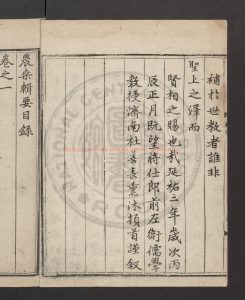 補於世教者誰非
聖上之澤而
賢相之賜也哉延祐三年歲次丙
辰正月既望將仕郎前左衛儒學
教授濟南杜善長熏沐頓首謹叙
農桒輯要目録
卷之一